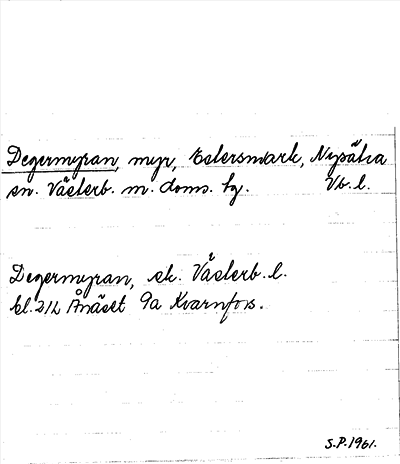 Degermyran, myr, Estersmark, Nysätra
sn. Västerb. m. doms. bg. Vb. l.
Degermyran, ek. Västerb. l.
bl. 212 Ånäset 9a Kvarnfors.
S.P. 1961.